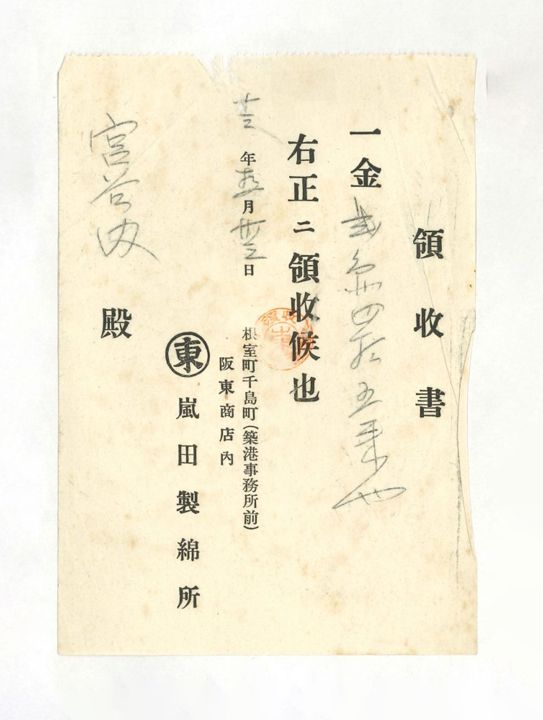 領收書
一金 弐円四拾五銭也
右正ニ領收候也
年 月 日
根室町千島町(築港事務所前)
阪東商店內
東 嵐田製綿所
宮谷内 殿